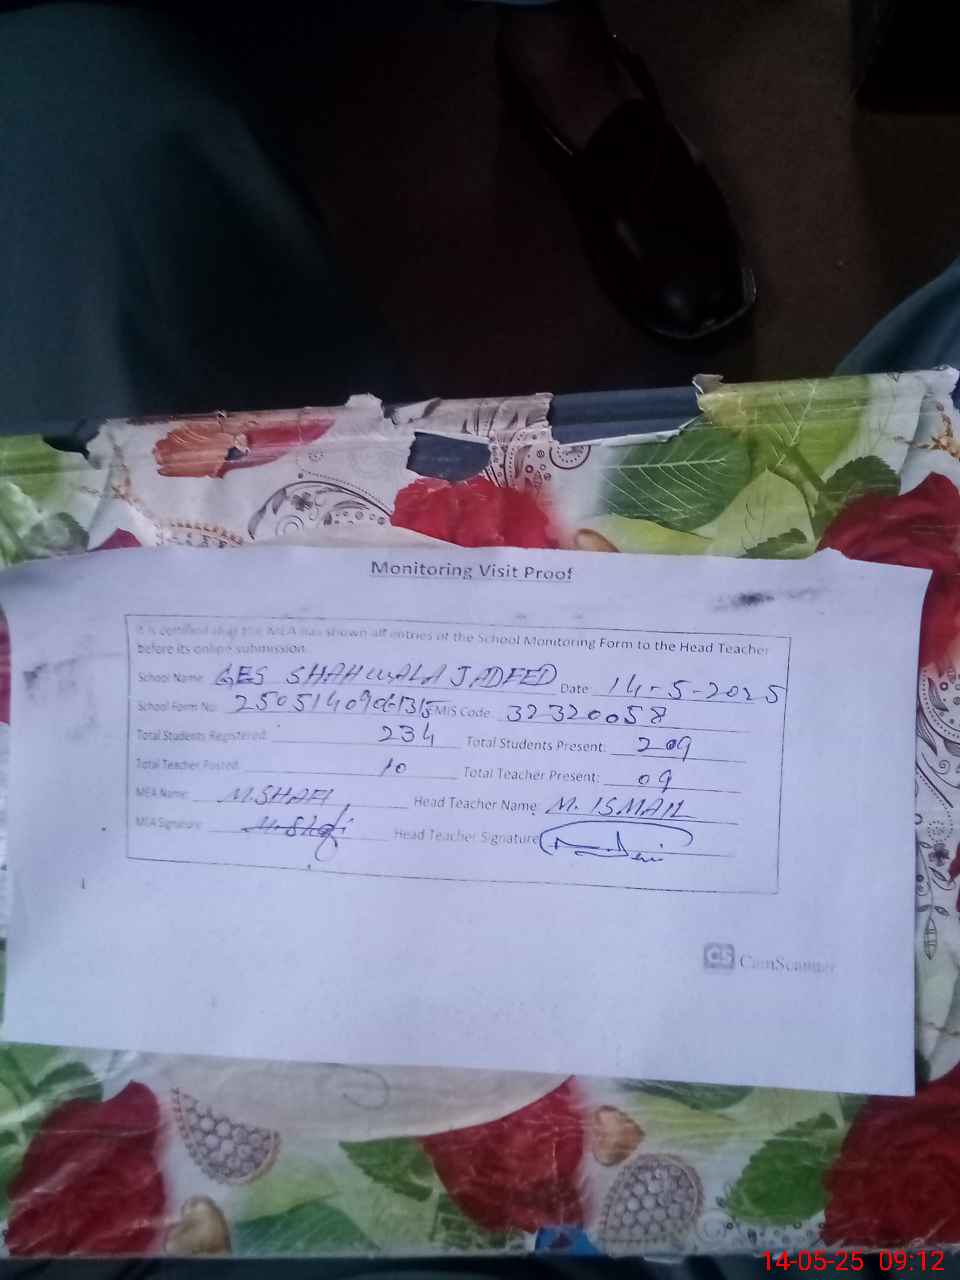 Monitoring Visit Proof
It is certified that the MEA has shown all entries of the School Monitoring Form to the Head Teacher
before its online submission.
School Name: GES SHAHWALA JADEED Date: 14-5-2025
School Form No: EMIS Code: 32320058
Total Students Registered: 234 Total Students Present: 209
Total Teacher Posted: 10 Total Teacher Present: 09
MEA Name: M.SHAFI Head Teacher Name: M. ISMAIL
MEA Signature: M.Shafi Head Teacher Signature
CS CamScanner
14-05-25 09:12